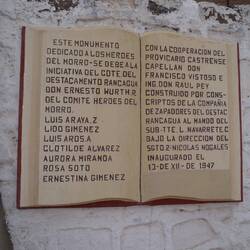 ESTE MONUMENTO
DEDICADO A LOS HEROES
DEL MORRO-SE DEBE A LA
INICIATIVA DEL CDTE. DEL
DESTACAMENTO RANCAGUA
DON ERNESTO WURTH R.
DEL COMITE HEROES DEL
MORRO.
LUIS ARAYA. Z
LIDO GIMENEZ
LUIS AROS. A
CLOTILDE ALVAREZ
AURORA MIRANDA
ROSA SOTO
ERNESTINA GIMENEZ
CON LA COOPERACION DEL
PROVICARIO CASTRENSE
CAPELLAN DON
FRANCISCO VISTOSO E
ING. DON RAUL PEY
CONSTRUIDO POR CONS-
CRIPTOS DE LA COMPAÑIA
DE ZAPADORES DEL DESTAC
RANCAGUA AL MANDO DEL
SUB-TTE. L. NAVARRETE. C
BAJO LA DIRECCION DEL
SGTO. 2º NICOLAS NOGALES
INAUGURADO EL
13-DE XII-DE 1947